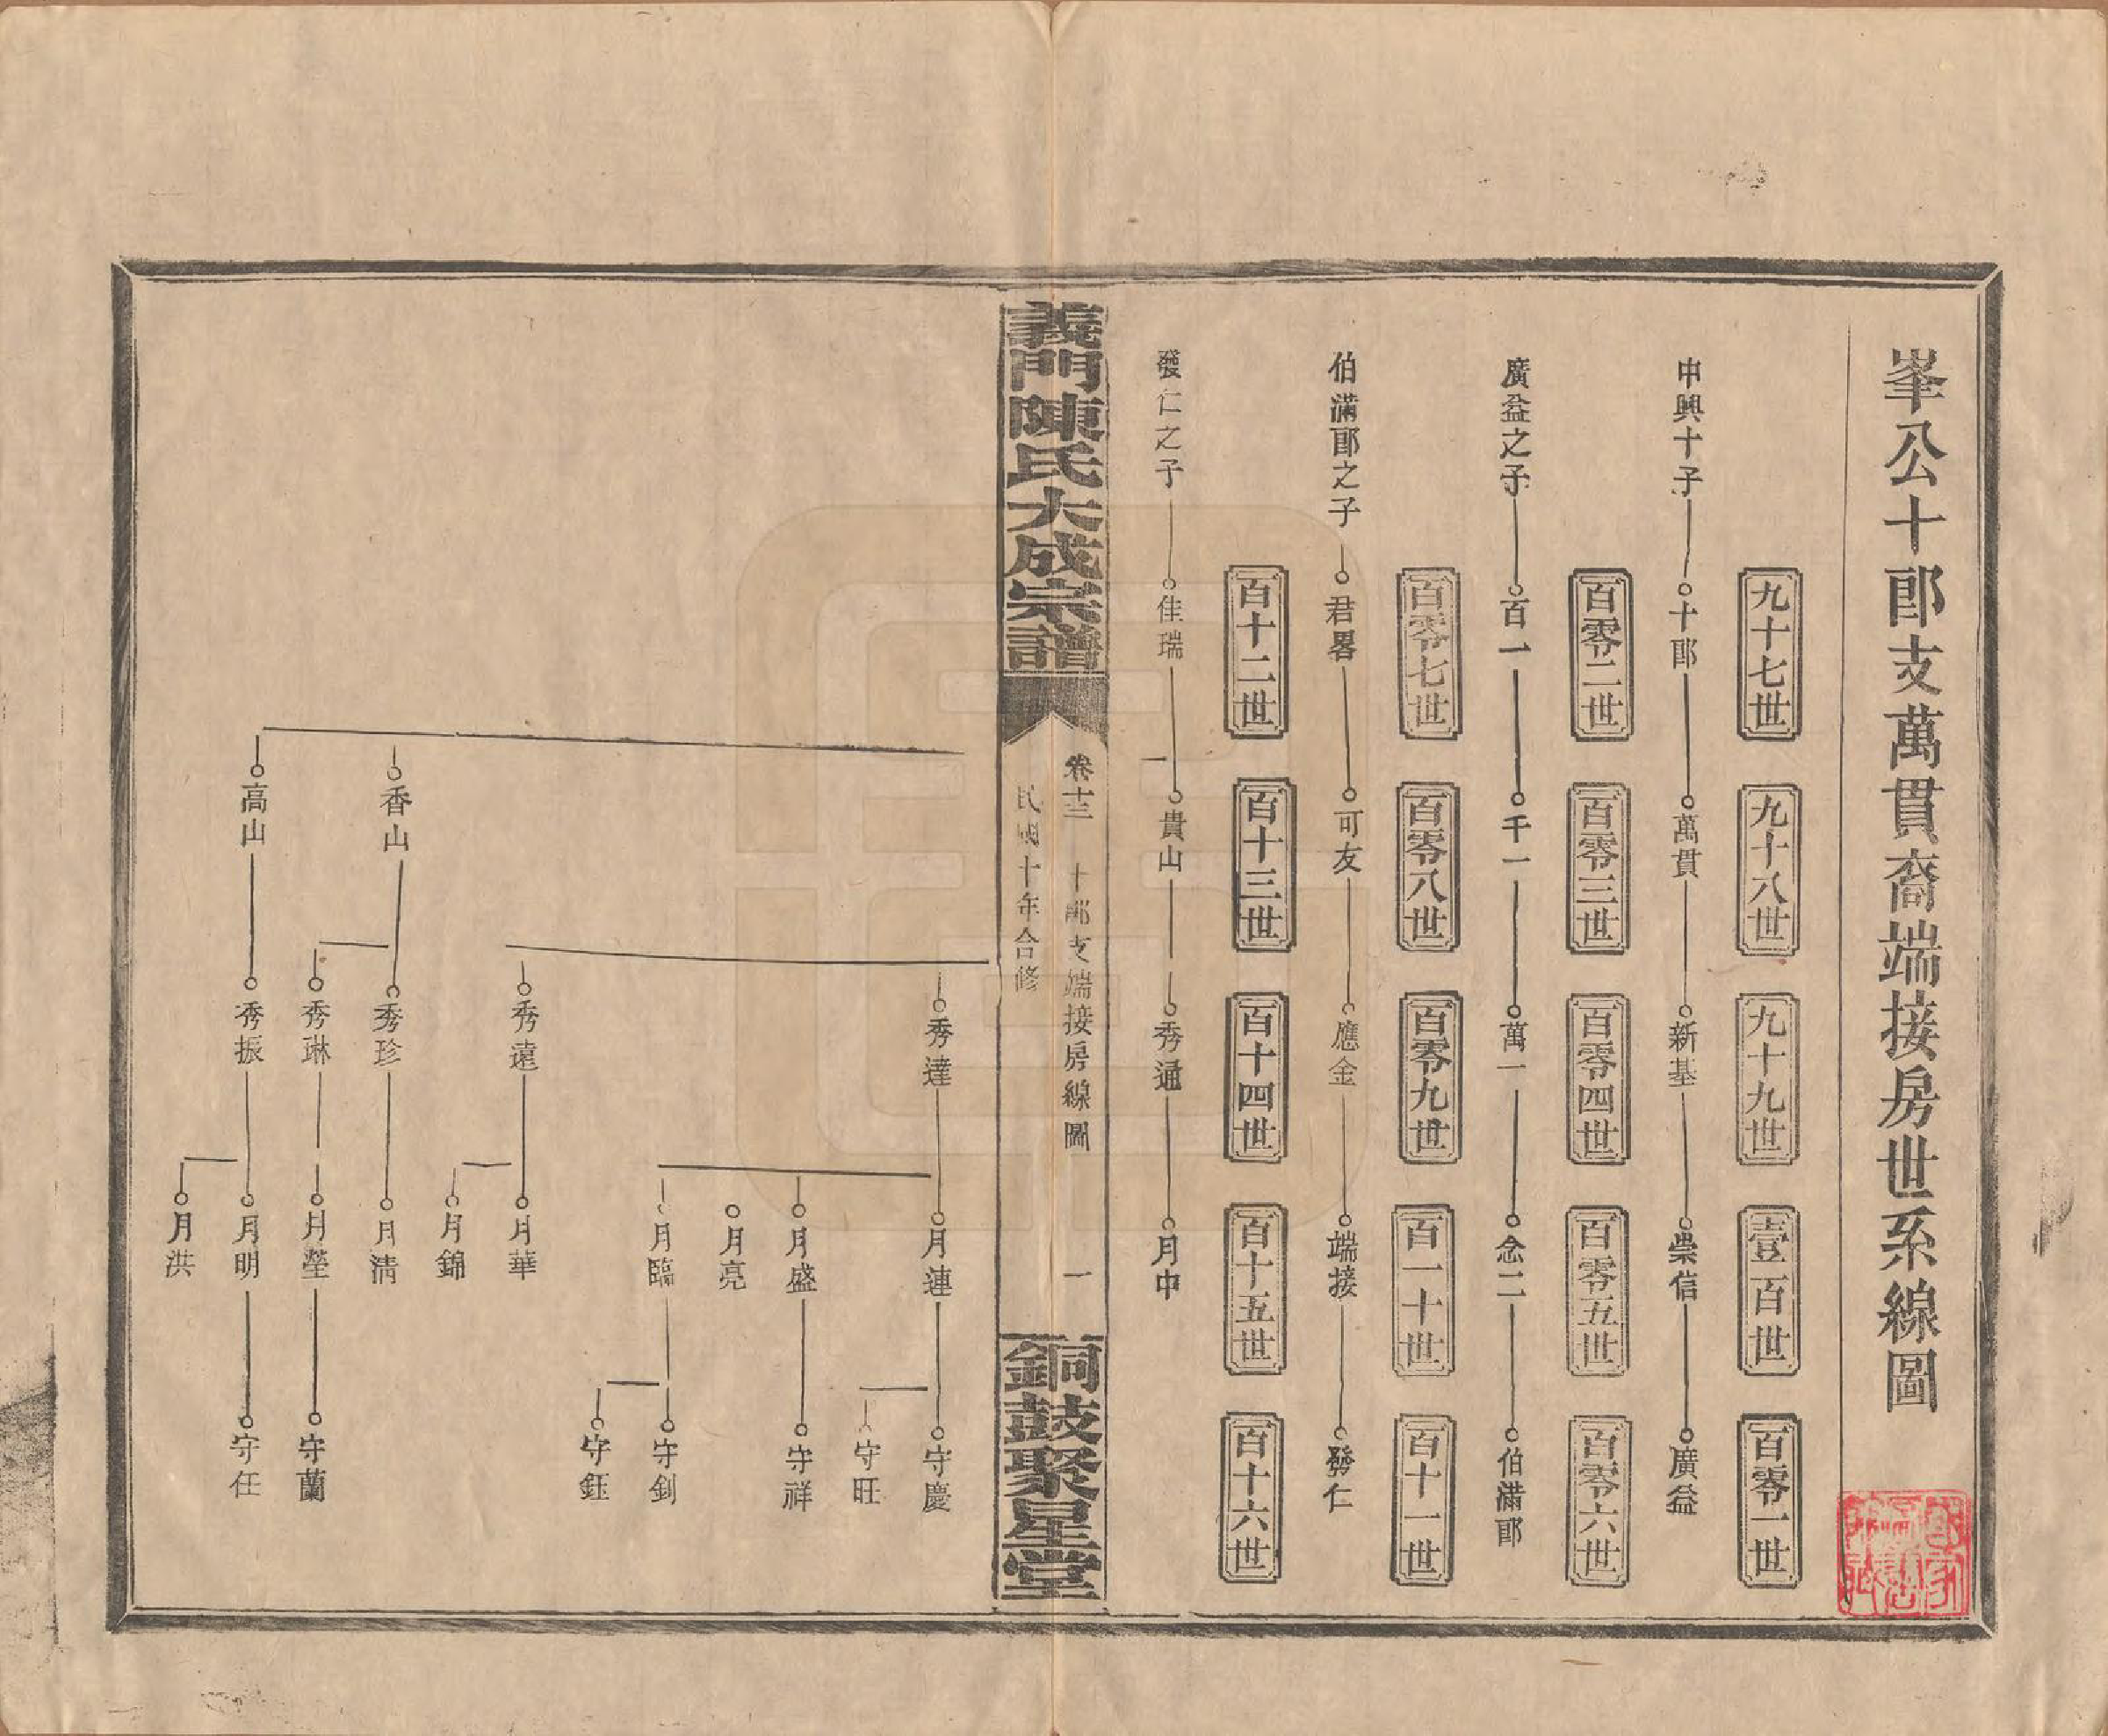 峯公十郎支萬貫裔端接房世系線圖
九十七世 九十八世 九十九世 壹百世 百零一世
中興十子 十郎 萬貫 新基 崇信 廣益
百零二世 百零三世 百零四世 百零五世 百零六世
廣益之子 百一 千一 萬一 念二 伯滿郎
百零七世 百零八世 百零九世 百一十世 百十一世
伯滿郎之子 君畧 可友 應金 端接 發仁
百十二世 百十三世 百十四世 百十五世 百十六世
發仁之子 佳瑞 貴山 秀通 月中
義門陳氏大成宗譜
卷十三 十郎支端接房線圖 一
民國十年合修
銅鼓聚星堂
秀達 月連 守慶
守旺
月盛 守祥
月亮
月臨 守釗
守鈺
秀遠 月華
月錦
香山 秀珍 月清
秀琳 月瑩 守蘭
高山 秀振 月明 守任
月洪